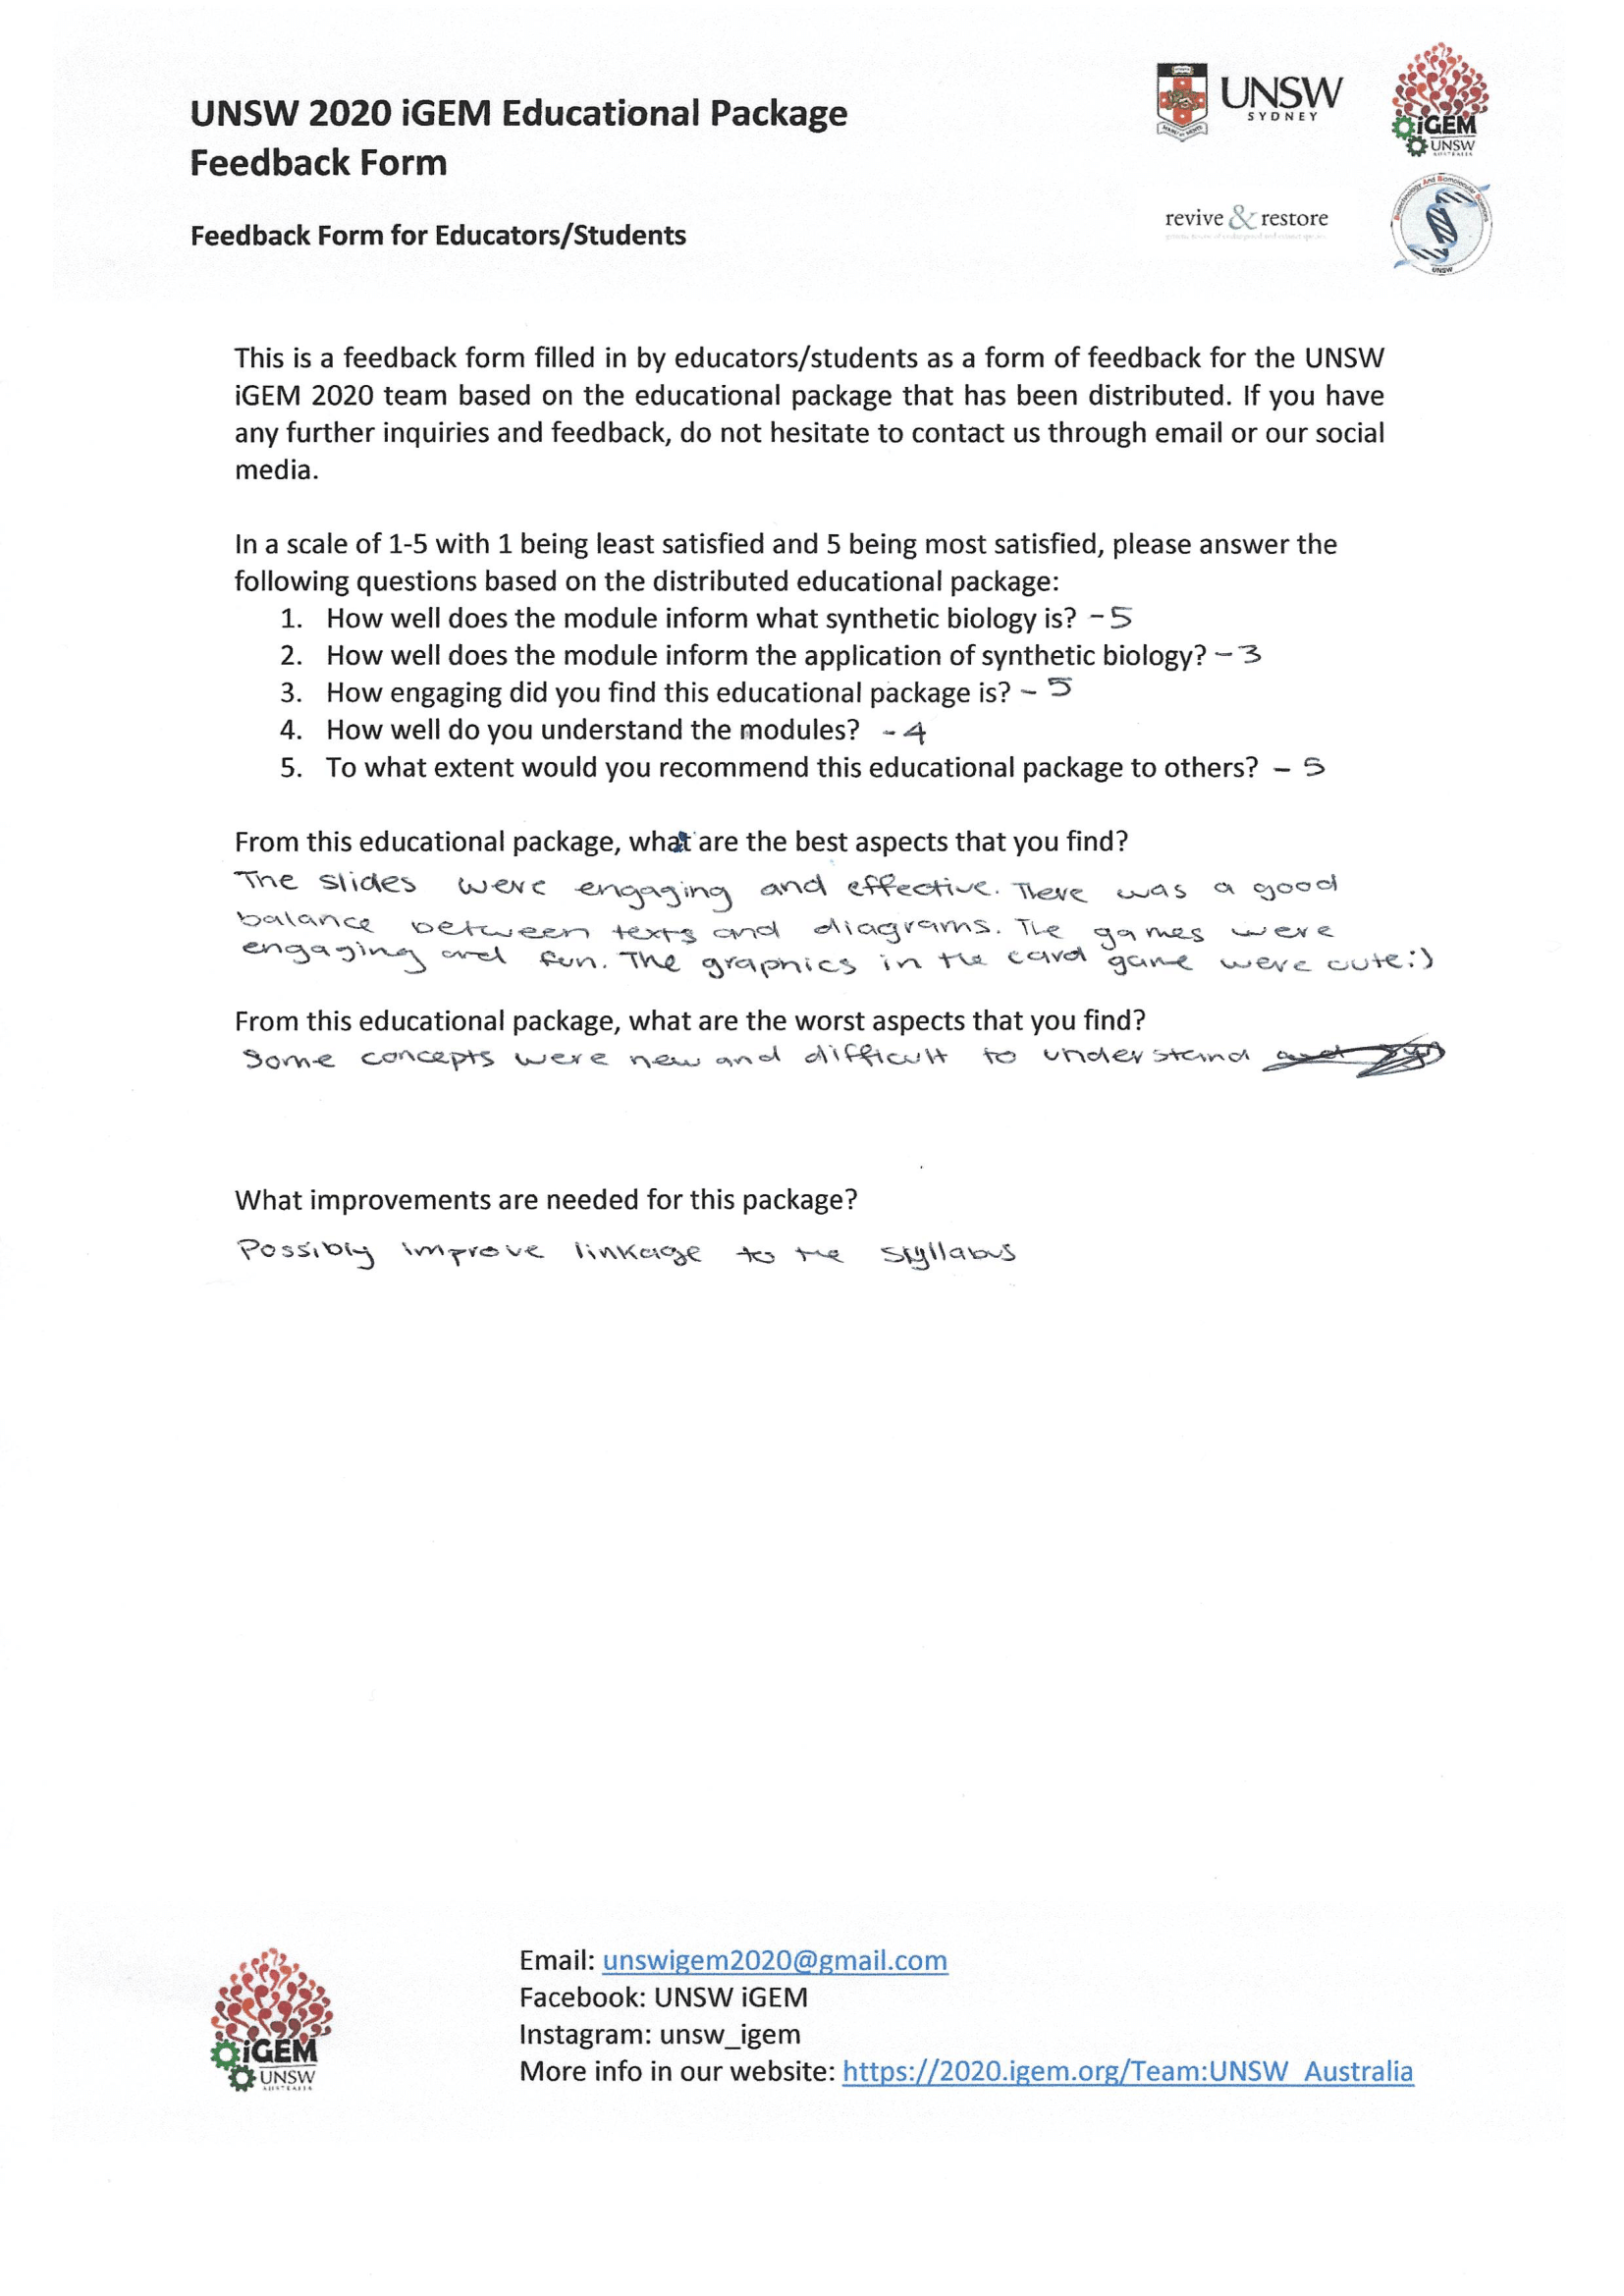 UNSW 2020 iGEM Educational Package
Feedback Form
Feedback Form for Educators/Students
UNSW
SYDNEY
iGEM
UNSW
AUSTRALIA
revive & restore
Biotechnology And Biomolecular Sciences
UNSW
This is a feedback form filled in by educators/students as a form of feedback for the UNSW
iGEM 2020 team based on the educational package that has been distributed. If you have
any further inquiries and feedback, do not hesitate to contact us through email or our social
media.
In a scale of 1-5 with 1 being least satisfied and 5 being most satisfied, please answer the
following questions based on the distributed educational package:
1. How well does the module inform what synthetic biology is? - 5
2. How well does the module inform the application of synthetic biology? - 3
3. How engaging did you find this educational package is? - 5
4. How well do you understand the modules? - 4
5. To what extent would you recommend this educational package to others? - 5
From this educational package, what are the best aspects that you find?
The slides were engaging and effective. There was a good
balance between texts and diagrams. The games were
engaging and fun. The graphics in the card game were cute:)
From this educational package, what are the worst aspects that you find?
Some concepts were new and difficult to understand
What improvements are needed for this package?
Possibly improve linkage to the syllabus
iGEM
UNSW
AUSTRALIA
Email: unswigem2020@gmail.com
Facebook: UNSW iGEM
Instagram: unsw_igem
More info in our website: https://2020.igem.org/Team:UNSW_Australia